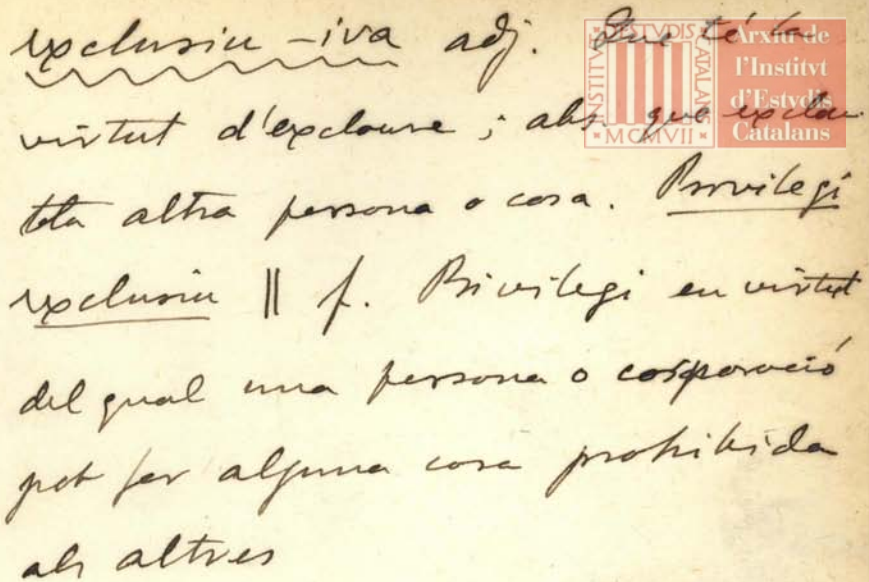 exclusiu -iva adj. Que té la
virtut d'excloure ; abs. que exclou
tota altra persona o cosa. Privilegi
exclusiu || f. Privilegi en virtut
del qual una persona o corporació
pot fer alguna cosa prohibida
als altres
INSTITVT D'ESTVDIS CATALANS
MCMVII
Arxiu de
l'Institvt
d'Estvdis
Catalans